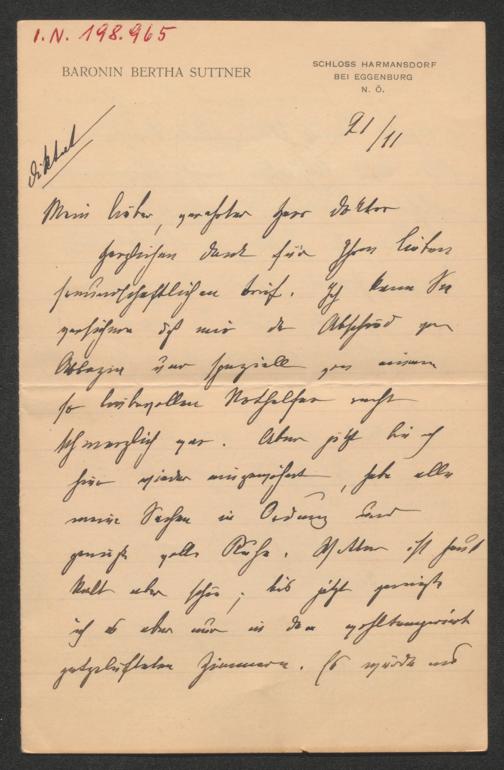 I.N. 198.965
BARONIN BERTHA SUTTNER
SCHLOSS HARMANSDORF
BEI EGGENBURG
N. Ö.
21/11
Diktat
Mein lieber, verehrter Herr Doktor
Herzlichen Dank für Ihren lieben
freundschaftlichen Brief. Ich kann Sie
versichern daß mir der Abschied von
Abbazia und speziell von einem
so liebevollen Nothelfer recht
schmerzlich war. Aber jetzt bin ich
hier wieder eingewöhnt, habe alle
meine Sachen in Ordnung und
genieße volle Ruhe. Wetter ist heut
kalt aber schön; bis jetzt genieße
ich es aber nur in den wohltemperirt
gutgelüfteten Zimmern. Es würde uns